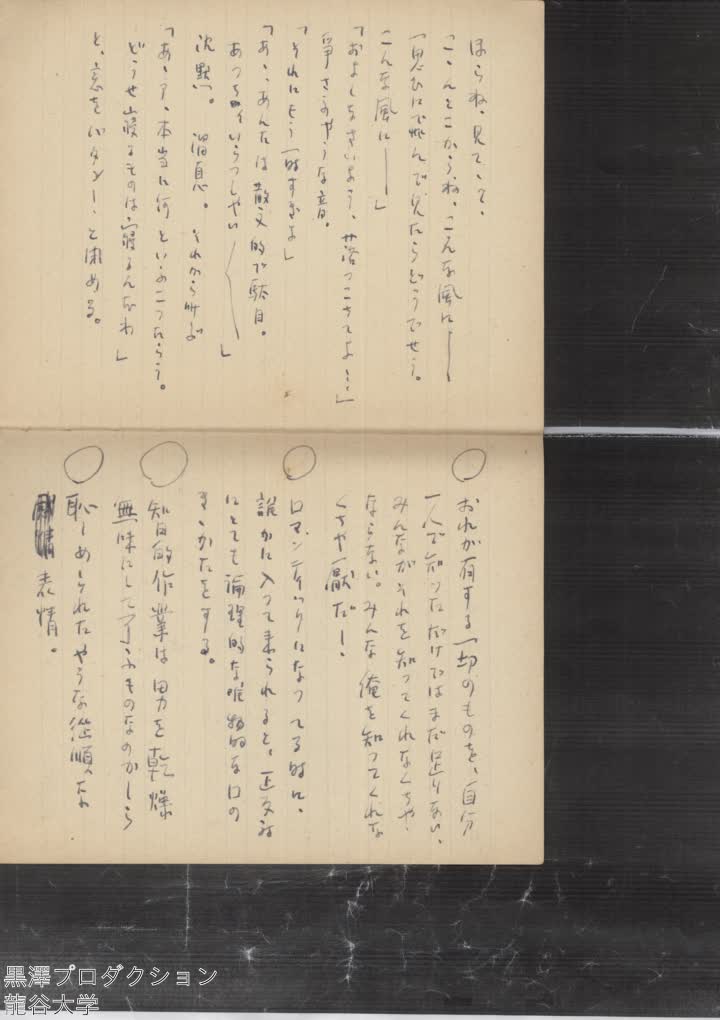 ほらね、見てゝて、
こゝんとこからね、こんな風に──
「思ひに飛んで見たらどうでせう。
こんな風に──」
「およしなさいよう、落つこちてよ…」
争さうやうな音。
「それにもう一時すぎよ」
「あゝ、あんたは散文的で駄目。
あつちへいらつしやい──」
沈黙。溜息。それから叫ぶ
「あゝア、本当に何といふこつたらう。
どうせ寝るものは、寝るんだわ」
と、窓をバタン!と閉める。
○ おれが有する一切のものを、自分
一人で知つただけではまだ足りない、
みんながそれを知つてくれなくちや
ならない。みんな俺を知つてくれな
くちや厭だ!
○ ロマンティックになつてる時に、
誰かに入つて来られると、正反対
にとても論理的な唯物的な口の
きゝかたをする。
○ 智的作業は男を乾燥
無味にして了ふものなのかしら
○ 恥しめられたやうな従順な
表情。
黒澤プロダクション
龍谷大学